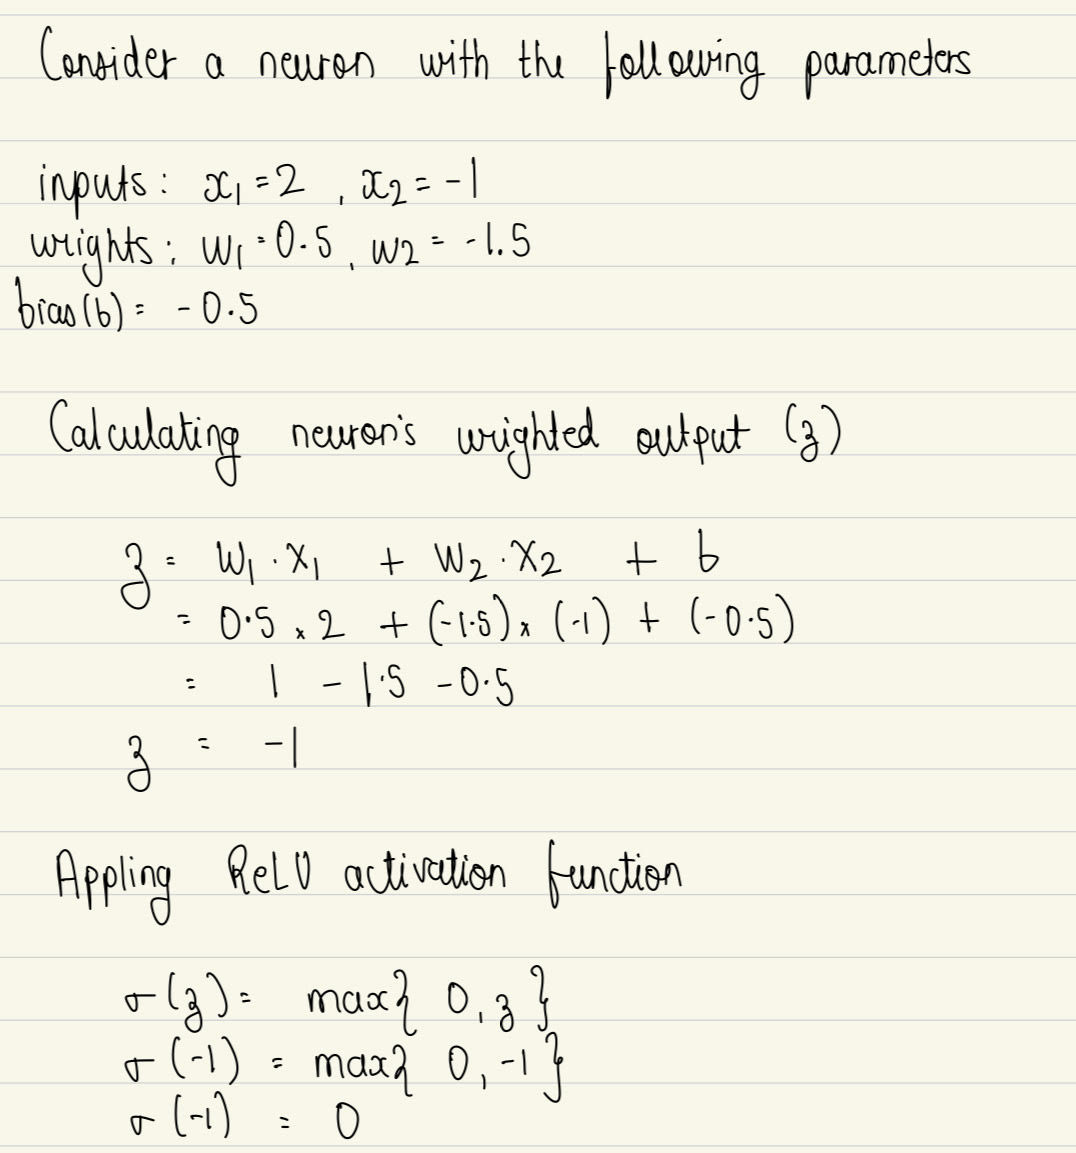 Consider a neuron with the following parameters
inputs: x₁ = 2 , x₂ = -1
wrights: w₁ = 0.5 , w₂ = -1.5
bias(b) = -0.5
Calculating neuron's wrighted output (z)
z = w₁ · x₁ + w₂ · x₂ + b
= 0.5 × 2 + (-1.5) × (-1) + (-0.5)
= 1 - 1.5 - 0.5
z = -1
Appling ReLU activation function
σ(z) = max{ 0, z }
σ(-1) = max{ 0, -1 }
σ(-1) = 0